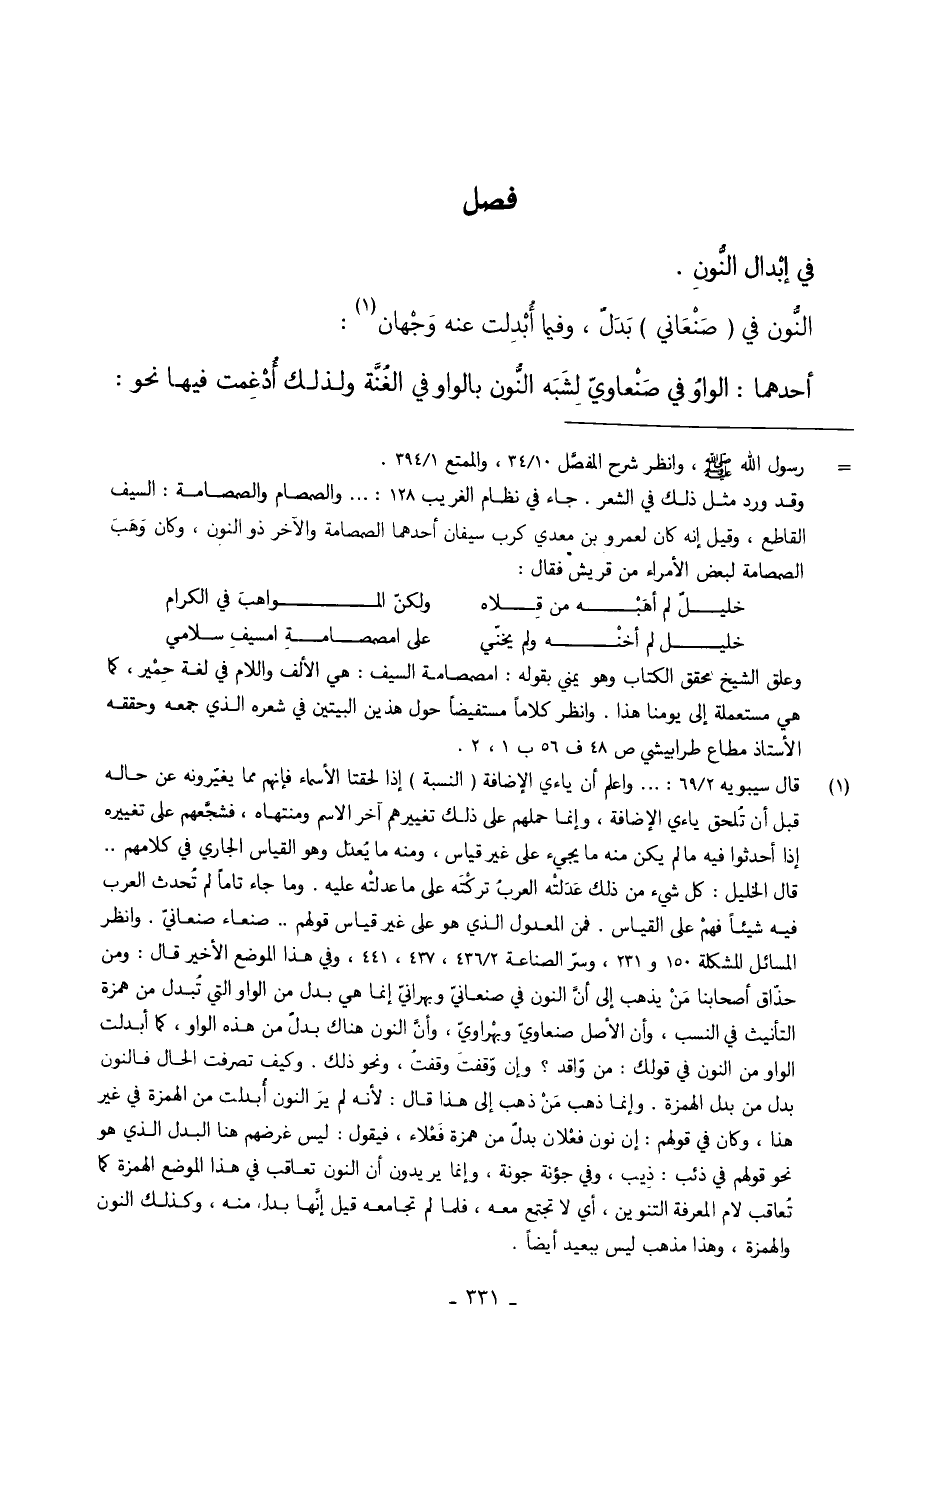 فصل
في إبْدال النُّونِ .
النُّون في ( صَنْعَاني ) بَدَلٌ ، وفيما أُبْدِلت عنه وَجْهان(١) :
أحدهما : الواوُ في صَنْعاويّ لِشَبَه النُّون بالواو في الغُنَّة ولذلك أُدْغِمت فيها نحو :
= رسول الله ﷺ ، وانظر شرح المفصّل ٣٤/١٠ ، والممتع ٣٩٤/١ .
وقد ورد مثل ذلك في الشعر . جاء في نظام الغريب ١٢٨ : ... والصمصام والصمصامة : السيف
القاطع ، وقيل إنه كان لعمرو بن معدي كرب سيفان أحدهما الصمصامة والآخر ذو النون ، وكان وَهَبَ
الصمصامة لبعض الأمراء من قريش فقال :
خليلٌ لم أهَبْه من قِلاه ولكنّ المواهبَ في الكرام
خليل لم أخنْه ولم يخنّي على امصمصامةِ امسيفِ سلامي
وعلق الشيخ محقق الكتاب وهو يمني بقوله : امصمصامة السيف : هي الألف واللام في لغة حِمْير ، كما
هي مستعملة إلى يومنا هذا . وانظر كلاماً مستفيضاً حول هذين البيتين في شعره الذي جمعه وحققه
الأستاذ مطاع طرابيشي ص ٤٨ ف ٥٦ ب ١ ، ٢ .
(١) قال سيبويه ٦٩/٢ : ... واعلم أن ياءي الإضافة ( النسبة ) إذا لحقتا الأسماء فإنهم مما يغيّرونه عن حاله
قبل أن تُلحق ياءي الإضافة ، وإنما حملهم على ذلك تغييرهم آخر الاسم ومنتهاه ، فشجَّعهم على تغييره
إذا أحدثوا فيه مالم يكن منه ما يجيء على غير قياس ، ومنه ما يُعدل وهو القياس الجاري في كلامهم ..
قال الخليل : كل شيء من ذلك عَدَلَتْه العربُ تركْتَه على ماعدلتْه عليه . وما جاء تاماً لم تُحدث العرب
فيه شيئاً فهمْ على القياس . فمن المعدول الذي هو على غير قياس قولهم .. صنعاء صنعانيّ . وانظر
المسائل المشكلة ١٥٠ و ٢٣١ ، وسرّ الصناعة ٤٣٦/٢ ، ٤٣٧ ، ٤٤١ ، وفي هذا الموضع الأخير قال : ومن
حذّاق أصحابنا مَنْ يذهب إلى أنَّ النون في صنعانيّ وبهرانيّ إنما هي بدل من الواو التي تُبدل من همزة
التأنيث في النسب ، وأن الأصل صنعاويّ وبهْراويّ ، وأنَّ النون هناك بدلٌ من هذه الواو ، كما أبدلت
الواو من النون في قولك : من وّاقد ؟ وإن وّقفتَ وقفتُ ، ونحو ذلك . وكيف تصرفت الحال فالنون
بدل من بدل الهمزة . وإنما ذهب مَنْ ذهب إلى هذا قال : لأنه لم يرَ النون أُبدلت من الهمزة في غير
هذا ، وكان في قولهم : إن نون فعْلان بدلٌ من همزة فَعْلاء ، فيقول : ليس غرضهم هنا البدل الذي هو
نحو قولهم في ذئب : ذِيب ، وفي جؤنة جونة ، وإنما يريدون أن النون تعاقب في هذا الموضع الهمزة كما
تُعاقب لام المعرفة التنوين ، أي لا تجتمع معه ، فلما لم تجامعه قيل إنَّها بدل منه ، وكذلك النون
والهمزة ، وهذا مذهب ليس ببعيد أيضاً .
- ٣٣١ -